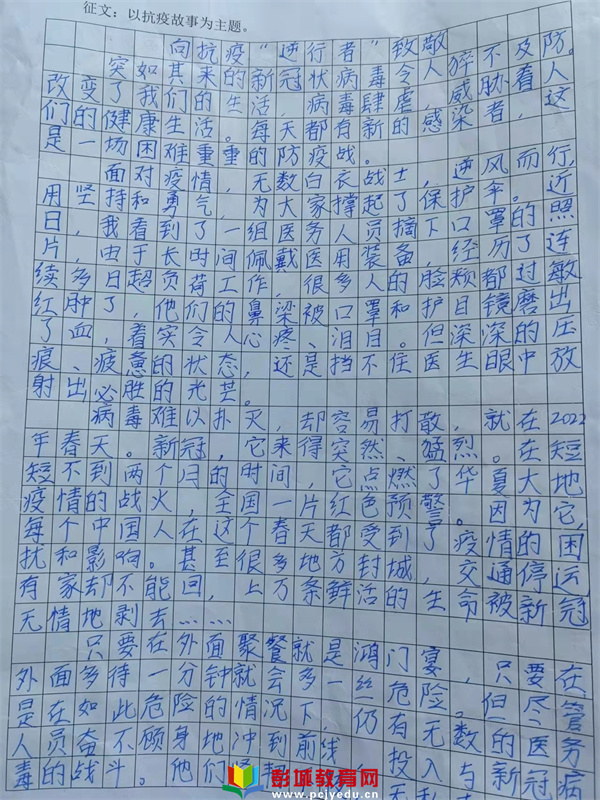 征文：以抗疫故事为主题。
向抗疫“逆行者”致敬
突如其来的新冠状病毒令人猝不及防。
改变了我们的生活，病毒肆虐，威胁着人
们的健康生活。每天都有新的感染者，这
是一场困难重重的防疫战。
面对疫情，无数白衣战士，逆风而行，
用坚持和勇气，为大家撑起了保护伞。近
日，我看到了一组医务人员摘下口罩的照
片，由于长时间佩戴医用装备，经历了连
续多日超负荷工作，很多人的脸颊都过敏
红肿了，他们的鼻梁被口罩和护目镜磨出
了血，着实令人心疼、泪目。但深深的压
痕、疲惫的状态，还是挡不住医生眼中放
射出必胜的光芒。
病毒难以扑灭，却容易打散，就在2022
年春天。新冠，它来得突然、猛烈。在短
短不到两个月的时间，它点燃了华夏大地
疫情的战火，全国一片红色预警。因为它，
每个中国人在这个春天都受到了疫情的困
扰和影响。甚至很多地方封城，交通停运
有家却不能回，上万条鲜活的生命被新冠
无情地剥去……
只要在外面聚餐就是鸿门宴，只要在
外面多待一分钟就会多一丝危险。但尽管
是在如此危险的情况下，仍有无数的医务
人员奋不顾身地冲到前线，投入与新冠病
毒的战斗。他们
彭城教育网
www.pcjyedu.cn